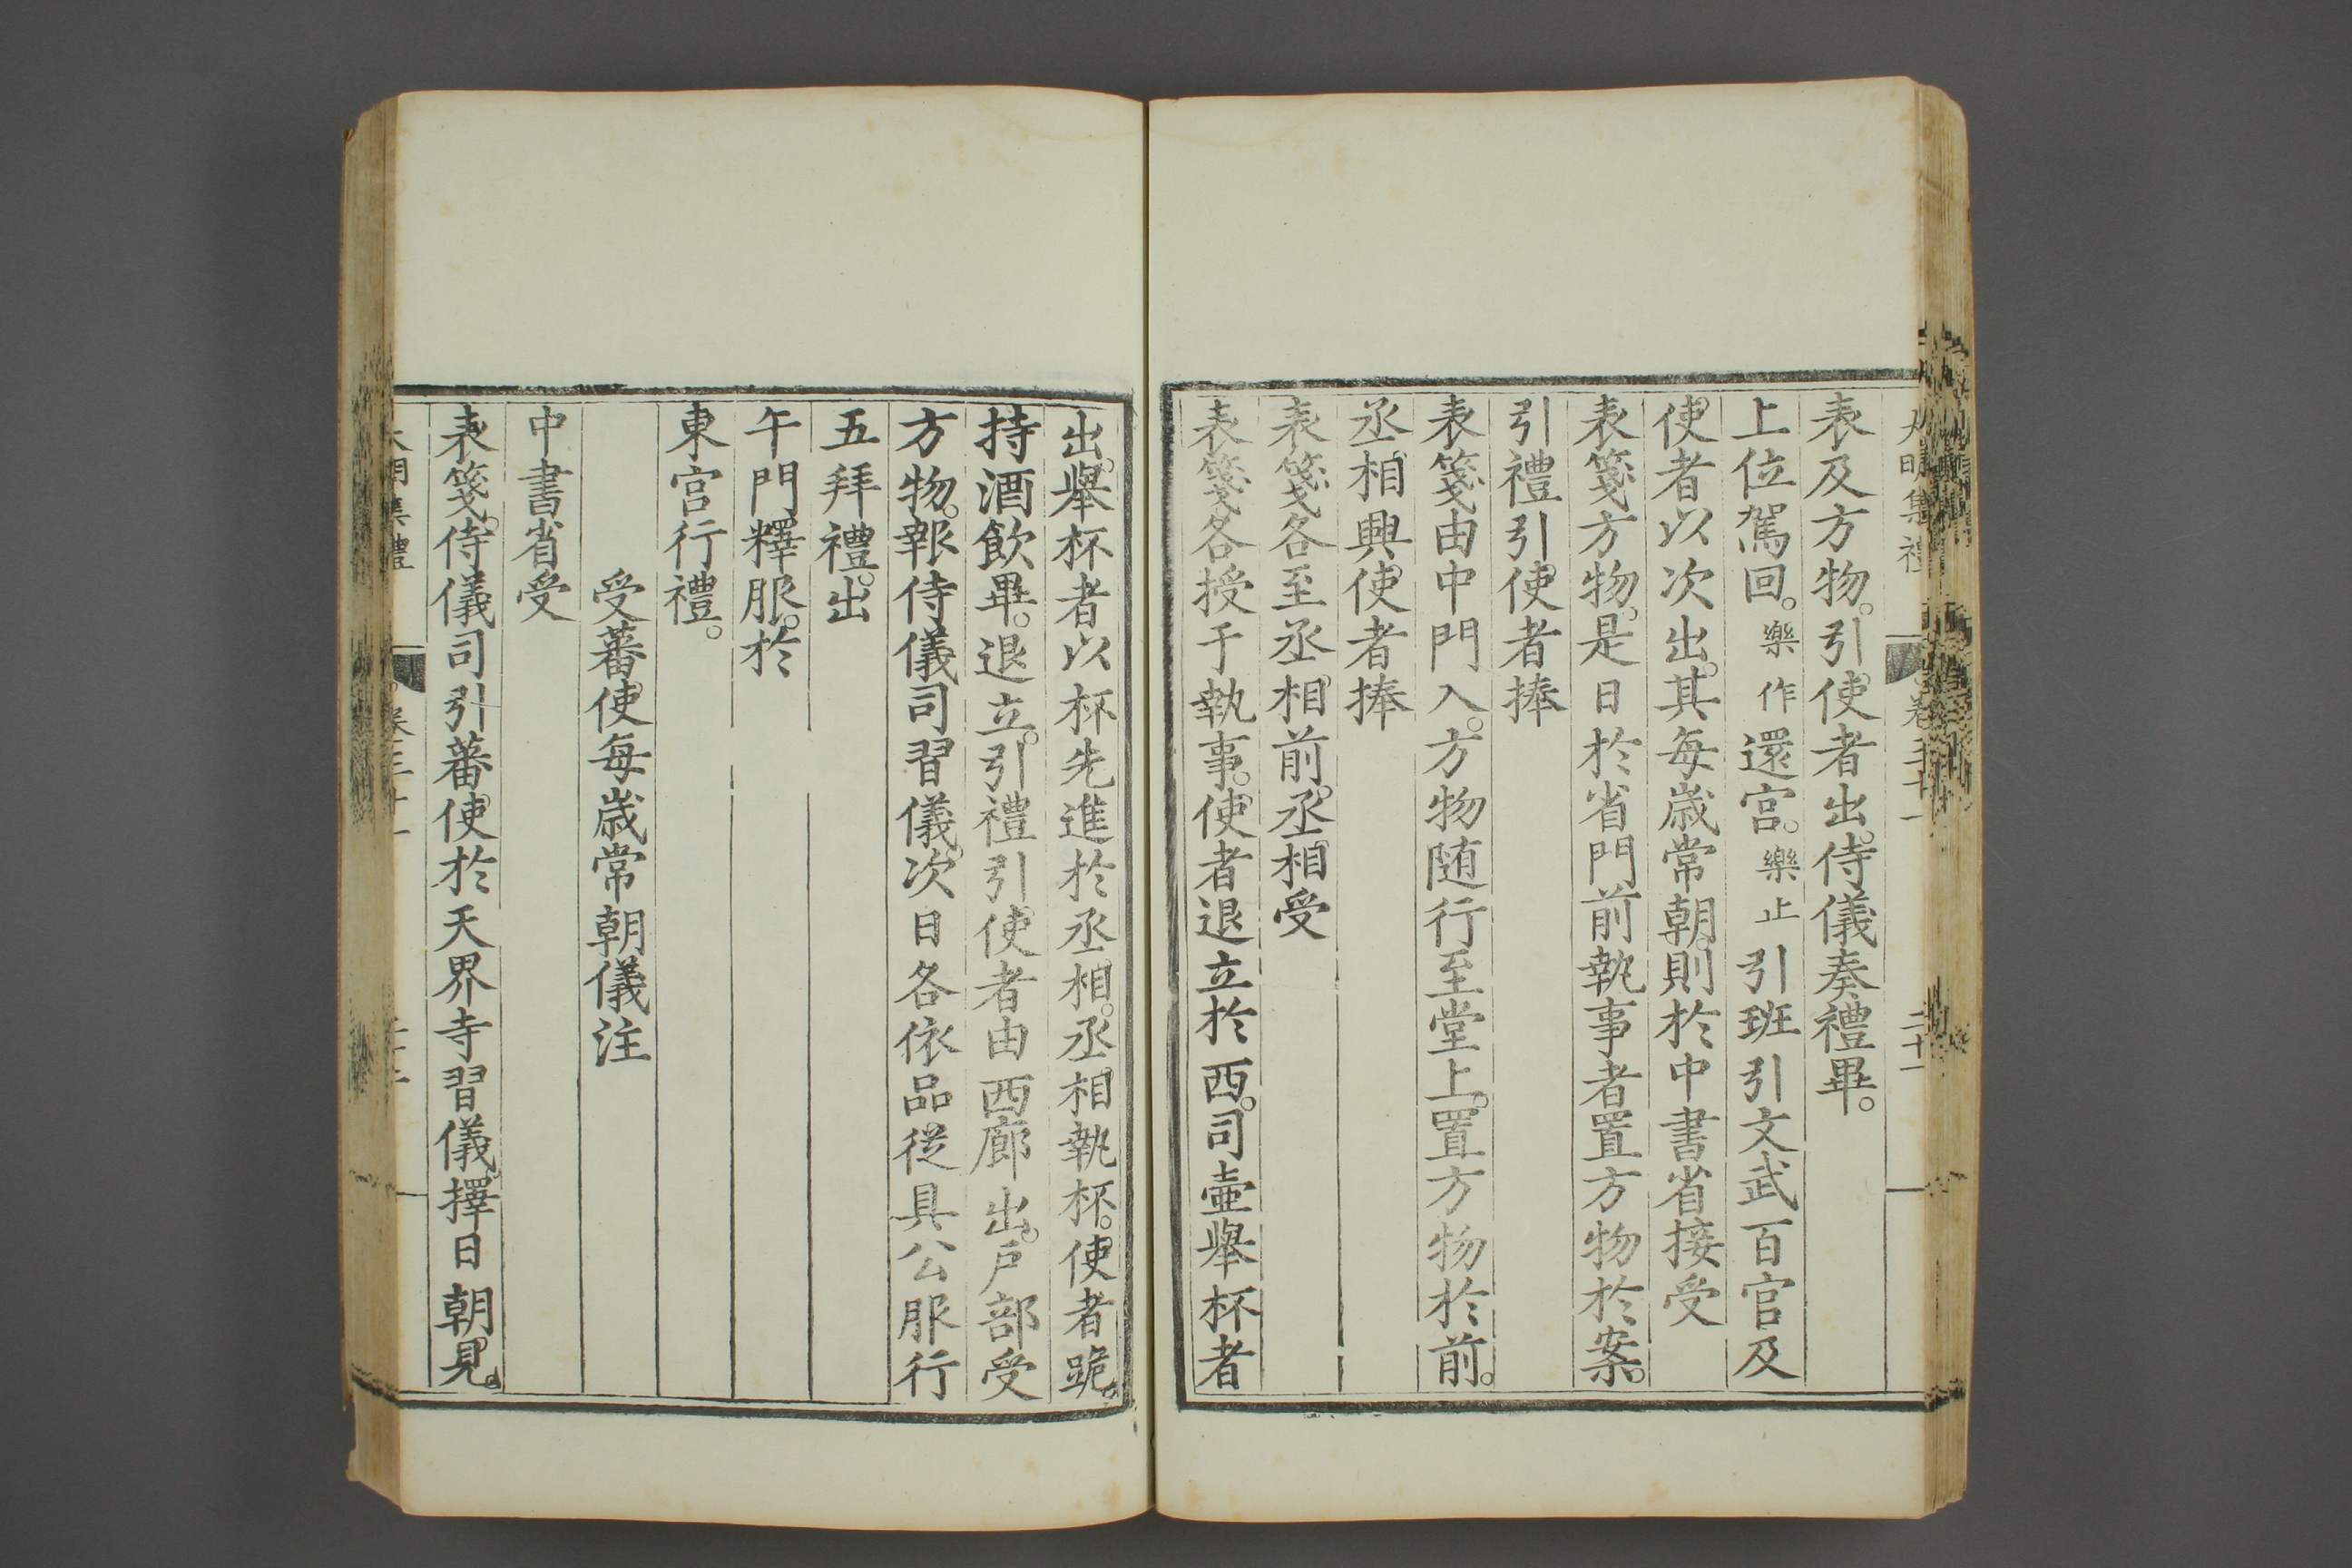 大明集禮 卷三十一 二十一
表及方物。引使者出。侍儀奏禮畢。
上位駕回。樂作還宮。樂止引班引文武百官及
使者以次出。其每歲常朝則於中書省接受
表箋方物。是日於省門前執事者置方物於案。
引禮引使者捧
表箋由中門入。方物随行至堂上。置方物於前。
丞相興。使者捧
表箋各至丞相前。丞相受
表箋各授于執事。使者退立於西。司壷舉杯者
出。舉杯者以杯先進於丞相。丞相執杯。使者跪。
持酒飲畢。退立。引禮引使者由西廊出。戶部受
方物。報侍儀司習儀。次日各依品從具公服行
五拜禮。出
午門釋服。於
東宮行禮。
受蕃使每歲常朝儀注
中書省受
表箋。侍儀司引蕃使於天界寺習儀。擇日朝見。